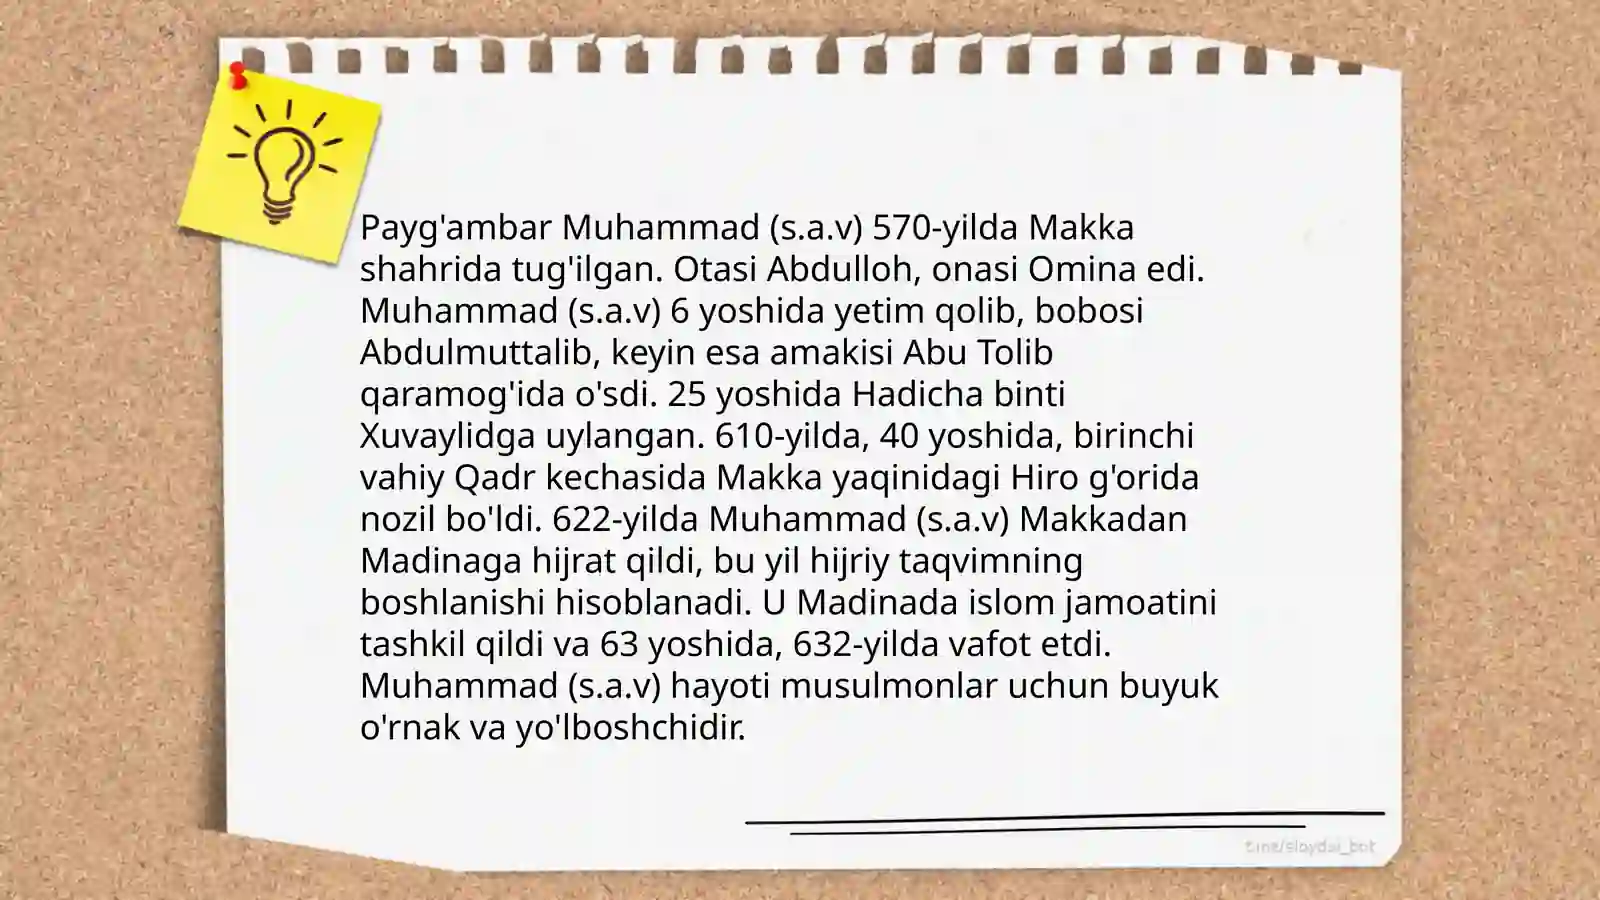 Payg'ambar Muhammad (s.a.v) 570-yilda Makka
shahrida tug'ilgan. Otasi Abdulloh, onasi Omina edi.
Muhammad (s.a.v) 6 yoshida yetim qolib, bobosi
Abdulmuttalib, keyin esa amakisi Abu Tolib
qaramog'ida o'sdi. 25 yoshida Hadicha binti
Xuvaylidga uylangan. 610-yilda, 40 yoshida, birinchi
vahiy Qadr kechasida Makka yaqinidagi Hiro g'orida
nozil bo'ldi. 622-yilda Muhammad (s.a.v) Makkadan
Madinaga hijrat qildi, bu yil hijriy taqvimning
boshlanishi hisoblanadi. U Madinada islom jamoatini
tashkil qildi va 63 yoshida, 632-yilda vafot etdi.
Muhammad (s.a.v) hayoti musulmonlar uchun buyuk
o'rnak va yo'lboshchidir.